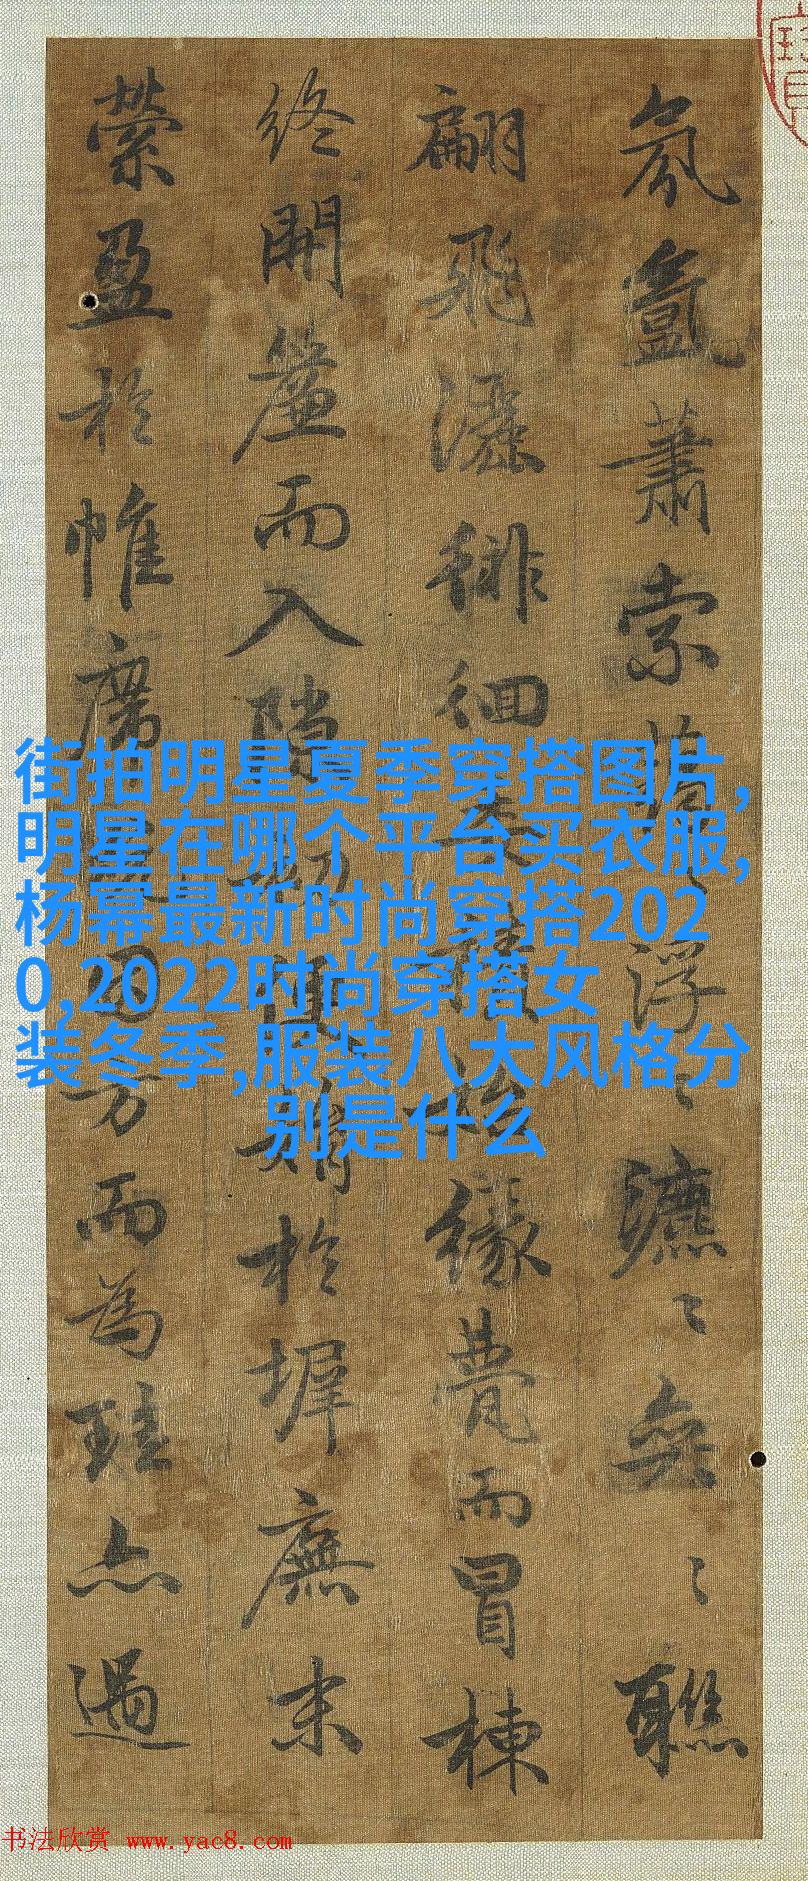 氛氳蕭索〻浮〻瀌〻奕〻聯
翩飛灑徘徊委積始緣甍而冒棟
終開簾而入隙初便娟於墀廡末
縈盈於帷席因方而為珪亦遇
街拍明星夏季穿搭图片,
明星在哪个平台买衣服,
杨幂最新时尚穿搭202
0,2022时尚穿搭女
装冬季,服装八大风格分
别是什么
书法欣赏 www.yac8.com